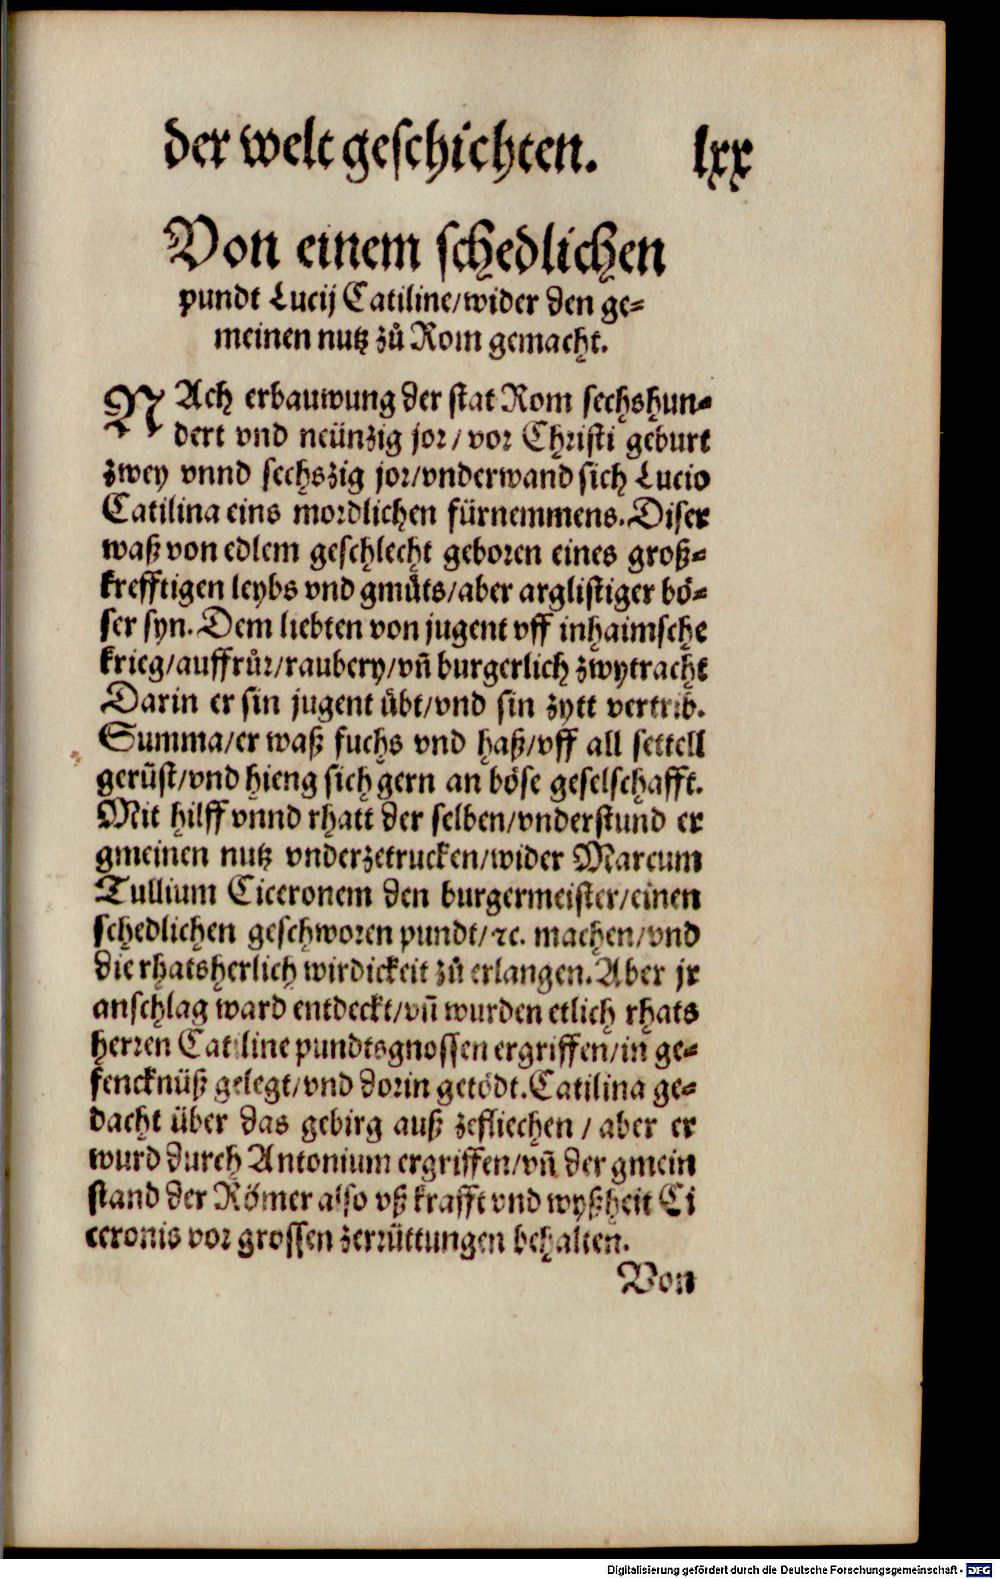 der welt geschichten. lxx
Von einem schedlichen
pundt Lucij Catiline/wider den ge⸗
meinen nutz zů Rom gemacht.
NAch erbauwung der stat Rom sechshun⸗
dert vnd neünzig jor/ vor Christi geburt
zwey vnnd sechszig jor/vnderwand sich Lucio
Catilina eins mordlichen fürnemmens. Diser
waß von edlem geschlecht geboren eines groß⸗
krefftigen leybs vnd gmůts/aber arglistiger bö⸗
ser syn. Dem liebten von jugent vff inhaimsche
krieg/auffrůr/raubery/vñ burgerlich zwytracht
Darin er sin jugent übt/vnd sin zytt vertrib.
Summa/er waß fuchs vnd haß/vff all settell
gerüst/vnd hieng sich gern an böse geselschafft.
Mit hilff vnnd rhatt der selben/vnderstund er
gmeinen nutz vnderzetrucken/wider Marcum
Tullium Ciceronem den burgermeister/einen
schedlichen geschworen pundt/⁊c. machen/vnd
die rhatsherlich wirdickeit zů erlangen. Aber jr
anschlag ward entdeckt/vñ wurden etlich rhats
herren Catiline pundtsgnossen ergriffen/in ge⸗
fencknüß gelegt/vnd dorin getödt. Catilina ge⸗
dacht über das gebirg auß zefliechen / aber er
wurd durch Antonium ergriffen/vñ der gmein
stand der Römer also vß krafft vnd wyßheit Ci
ceronis vor grossen zerrüttungen behalten.
Von
Digitalisierung gefördert durch die Deutsche Forschungsgemeinschaft - DFG